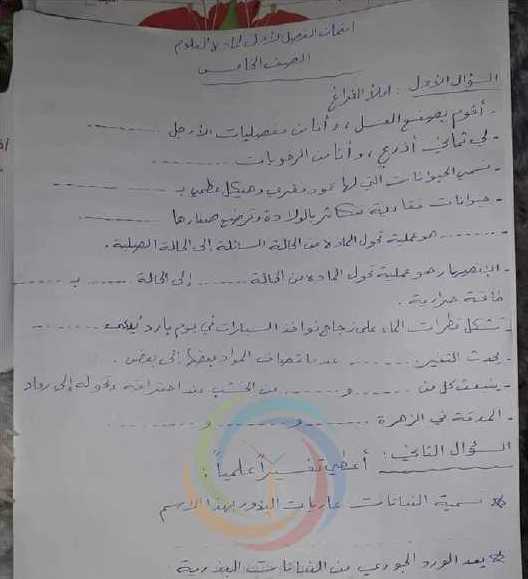 امتحان الفصل الأول لمادة العلوم
الصف الخامس
السؤال الأول : املأ الفراغ
- أقوم بصنع العسل ، وأنا من مفصليات الأرجل ........
- لي ثماني أذرع ، وأنا من الرخويات ........
- تسمى الحيوانات التي لها عمود فقري وهيكل عظمي بـ ........
- حيوانات فقارية تتكاثر بالولادة وترضع صغارها ........
- ........ هو عملية تحول المادة من الحالة السائلة إلى الحالة الصلبة .
- الإنصهار هو عملية تحول المادة من الحالة ...... إلى الحالة ...... بـ ......
طاقة حرارية .
- تشكل قطرات الماء على زجاج نوافذ السيارات في يوم بارد ........
- يحدث التغير ........ عند إضافة المواد بعضها إلى بعض .
- ينبعث كل من ........ و ........ من الخشب عند احتراقه وتحوله إلى رماد
- المدقة في الزهرة ........ و ........ و ........
السؤال الثاني : أعطي تفسيراً علمياً :
* تسمية النباتات عاريات البذور بهذا الاسم
* يعد الورد الجوري من النباتات البذرية